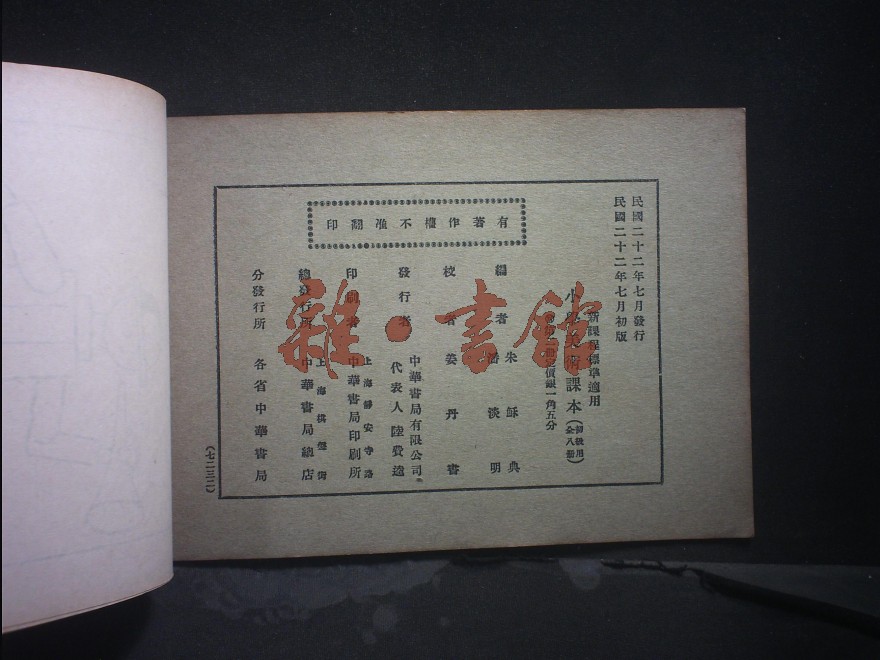 民國二十二年七月發行
民國二十二年七月初版
新課程標準適用
小學美術課本(初級用全八冊)
定價銀一角五分
有著作權不准翻印
編者
朱穌典
潘淡明
校者
姜丹書
發行者
中華書局有限公司
代表人 陸費逵
印刷者
上海靜安寺路
中華書局印刷所
總發行所
上海棋盤街
中華書局總店
分發行所
各省中華書局
雜·書館